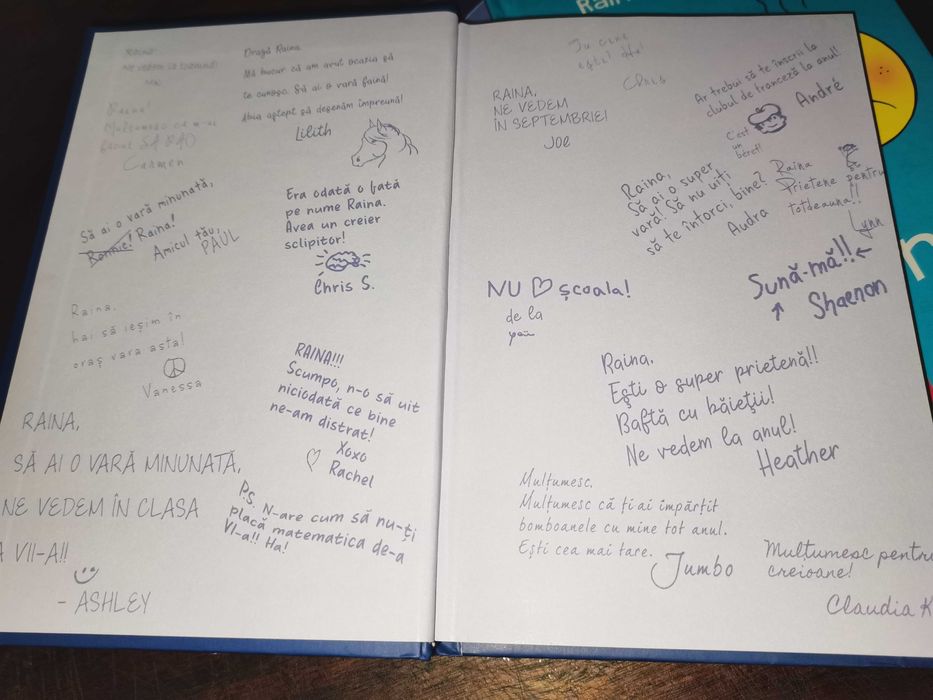 Raina
Ne vedem la toamnă!
Raina!
Mulțumesc că m-ai
făcut SĂ RÂD
Carmen
Dragă Raina
Mă bucur că am avut ocazia să
te cunosc. Să ai o vară faină!
Abia aștept să desenăm împreună!
Lilith
Să ai o vară minunată,
Ronnie! Raina!
Amicul tău,
PAUL
Era odată o fată
pe nume Raina.
Avea un creier
sclipitor!
Chris S.
Raina,
hai să ieșim în
oraș vara asta!
Vanessa
RAINA!!!
Scumpo, n-o să uit
niciodată ce bine
ne-am distrat!
Xoxo
Rachel
P.S. N-are cum să nu-ți
placă matematica de-a
VI-a!! Ha!
RAINA,
SĂ AI O VARĂ MINUNATĂ,
NE VEDEM ÎN CLASA
A VII-A!!
- ASHLEY
Tu cine
ești?
Chris
RAINA,
NE VEDEM
ÎN SEPTEMBRIE!
JOE
Ar trebui să te înscrii la
clubul de franceză la anul!
André
C'est
un
béret!
Raina,
Să ai o super
vară! Să nu uiți
să te întorci, bine?
Audra
Raina
Prietene pentru
totdeauna!!
Lynn
NU ♡ școala!
de la
Sună-mă!!
Shaenon
Raina,
Ești o super prietenă!!
Baftă cu băieții!
Ne vedem la anul!
Heather
Mulțumesc.
Mulțumesc că ți-ai împărțit
bomboanele cu mine tot anul.
Ești cea mai tare.
Jumbo
Mulțumesc pentru
creioane!
Claudia K
Rain